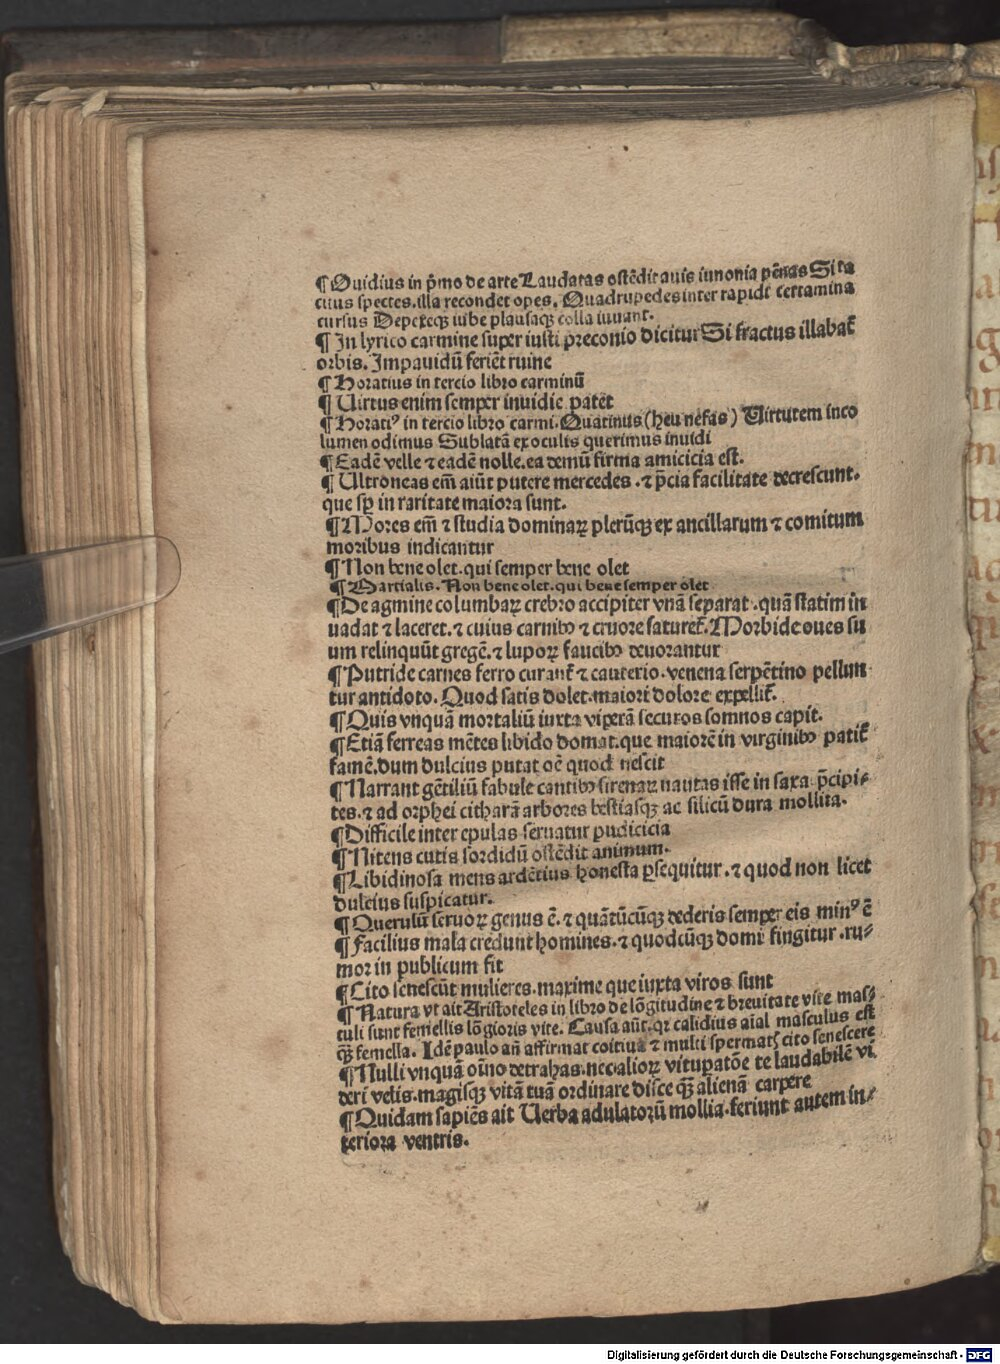 ¶Ouidius in p̄mo de arte Laudatas ostēdit auis iunonia pēnas Si ta
citus spectes.illa recondet opes. Quadrupedes inter rapidi certamina
cursus Depexeqꝫ iube plausaqꝫ colla iuuant.
¶In lyrico carmine super iusti p̄reconio dicitur Si fractus illabat᷑
orbis. Impauidū feriēt ruine
¶Horatius in tercio libro carminū
¶Uirtus enim semper inuidie patēt
¶Horatiꝰ in tercio libro carmi. Quatinus (heu nefas) Uirtutem inco
lumen odimus Sublatā ex oculis querimus inuidi
¶Eadē velle ⁊ eadē nolle.ea demū firma amicicia est.
¶Ultroneas em̄ aiūt putere mercedes .⁊ p̄cia facilitate decrescunt.
que sp̄ in raritate maiora sunt.
¶Mores em̄ ⁊ studia dominaꝝ plerūqꝫ ex ancillarum ⁊ comitum
moribus indicantur
¶Non bene olet.qui semper bene olet
¶Martialis. Non bene olet.qui bene semper olet
¶De agmine columbaꝝ crebro accipiter vnā separat .quā statim in
uadat ⁊ laceret.⁊ cuius carnibꝫ ⁊ cruore saturet᷑.Morbide oues su
um relinquūt gregē.⁊ lupoꝝ faucibꝫ deuorantur
¶Putride carnes ferro curant᷑ ⁊ cauterio.venena serpētino pellun
tur antidoto. Quod satis dolet.maiori dolore expellit᷑.
¶Quis vnquā mortaliū iuxta viperā securos somnos capit.
¶Etiā ferreas mētes libido domat.que maiorē in virginibꝫ patit᷑
famē.dum dulcius putat oē quod nescit
¶Narrant gētiliū fabule cantibꝫ sirenaꝝ nautas isse in saxa p̄cipi⸗
tes.⁊ ad orphei citharā arbores bestiasqꝫ ac silicū dura mollita.
¶Difficile inter epulas seruatur pudicicia
¶Nitens cutis sordidū ostēdit animum.
¶Libidinosa mens ardētius honesta ꝑsequitur.⁊ quod non licet
dulcius suspicatur.
¶Querulū seruoꝝ genus ē.⁊ quātūcūqꝫ dederis semper eis minꝰ ē
¶Facilius mala credunt homines.⁊ quodcūqꝫ domi fingitur .ru⸗
mor in publicum fit
¶Cito senescūt mulieres.maxime que iuxta viros sunt
¶Natura vt ait Aristoteles in libro de lōgitudine ⁊ breuitate vite mas⸗
culi sunt femellis lōgioris vite. Causa aūt.qꝛ calidius aīal masculus est
qꝫ̄ femella. Idē paulo añ affirmat coitiua ⁊ multi spermatꝭ cito senescere
¶Nulli vnquā oīno detrahas.nec alioꝝ vituꝑatōe te laudabilē vi
deri velis.magisqꝫ vitā tuā ordinare disce qꝫ̄ alienā carpere
¶Quidam sapiēs ait Uerba adulatorū mollia.feriunt autem in⸗
teriora ventris.
Digitalisierung gefördert durch die Deutsche Forschungsgemeinschaft - DFG